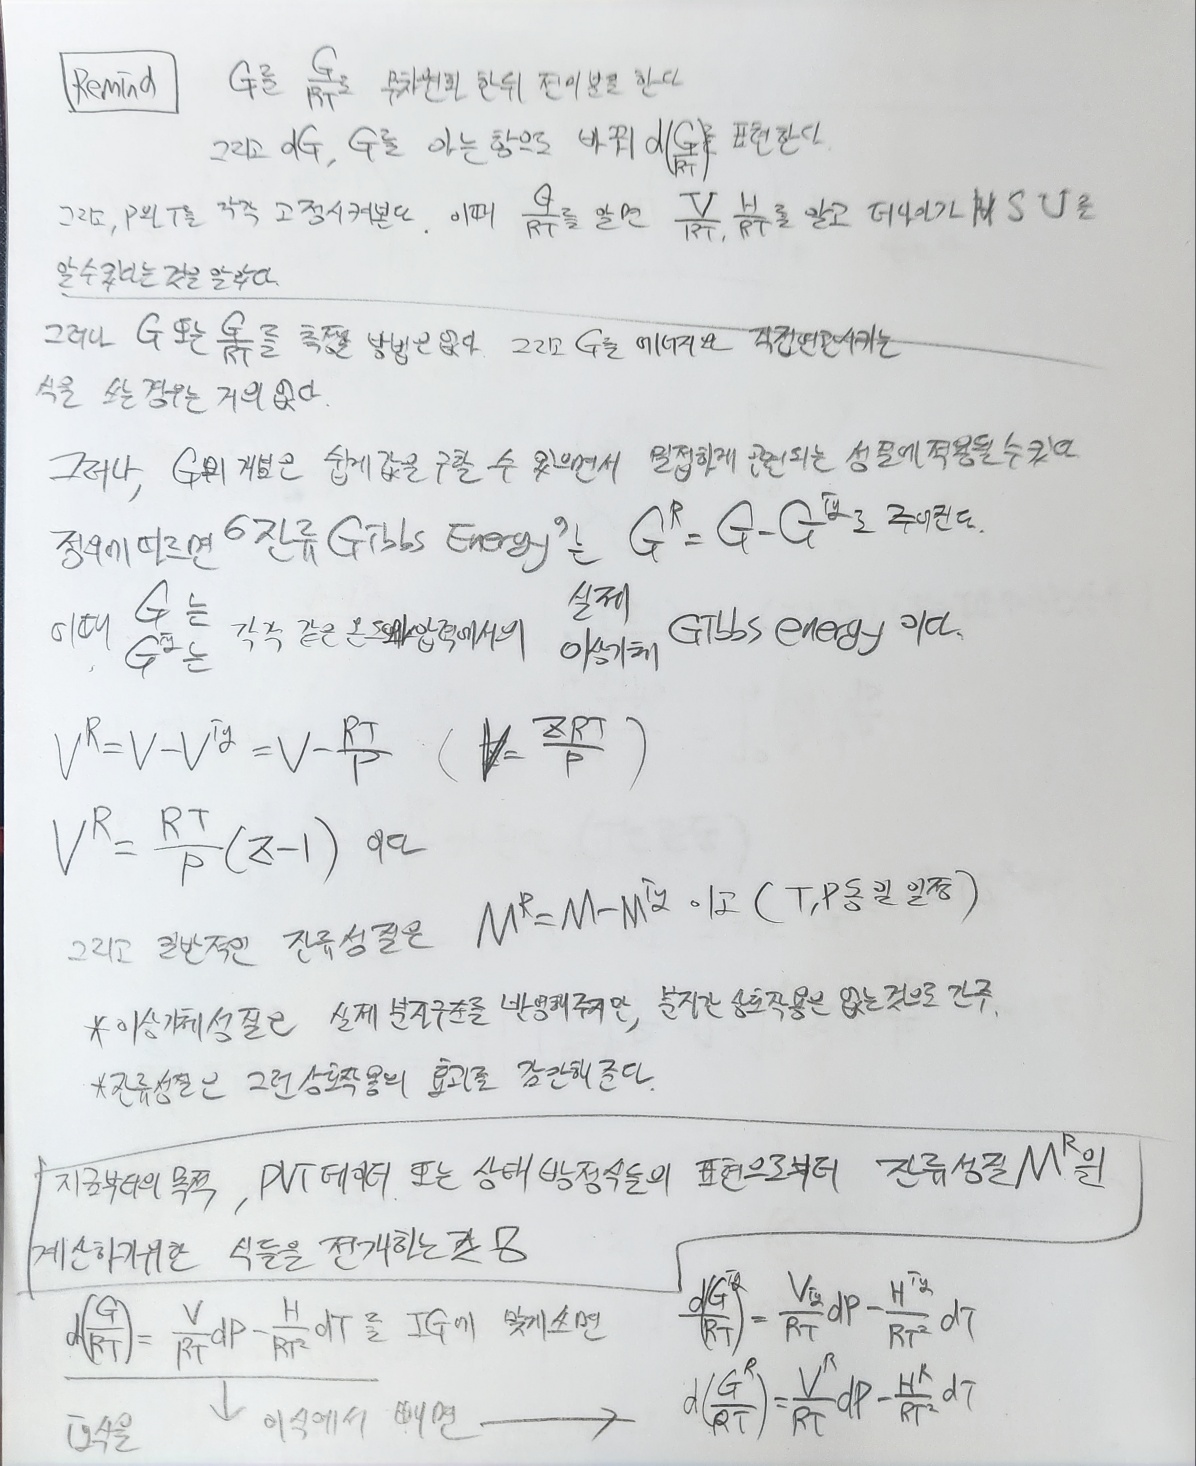 Remind G를 G/RT로 무차원화 한뒤 전미분을 한다
그리고 dG, G를 아는 항으로 바꿔 d(G/RT)를 표현한다.
그리고, P와 T를 각각 고정시켜본다. 이때 G/RT를 알면 V/RT, H/RT를 알고 더 나아가 S U를
알 수 있다는 것을 알았다.
그러나 G 또는 G/RT를 측정할 방법은 없다. 그리고 G를 에너지와 직접 연관시키는
식을 쓰는 경우는 거의 없다.
그러나, G의 개념은 쉽게 값을 구할 수 있으면서 밀접하게 관련되는 성질에 적용될 수 있다
정의에 따르면 '잔류 Gibbs Energy'는 G^R = G - G^ig로 주어진다.
이때 G는 G^ig는 각각 같은 온도와 압력에서의 실제 이상기체 Gibbs energy 이다.
V^R = V - V^ig = V - RT/P (V = ZRT/P)
V^R = RT/P (Z-1) 이다
그리고 일반적인 잔류성질은 M^R = M - M^ig 이고 (T,P 동일 일정)
*이상기체성질은 실제 분자구조를 반영해주지만, 분자간 상호작용은 없는것으로 간주.
*잔류성질은 그런 상호작용의 효과를 감안해 준다.
지금부터의 목적, PVT데이터 또는 상태방정식들의 표현으로부터 잔류성질 M^R을
계산하기위한 식들을 전개하는
d(G/RT) = V/RT dP - H/RT² dT 를 IG에 맞게쓰면 d(G^ig/RT) = V^ig/RT dP - H^ig/RT² dT
ig식을 ↓ 이식에서 빼면 → d(G^R/RT) = V^R/RT dP - H^R/RT² dT